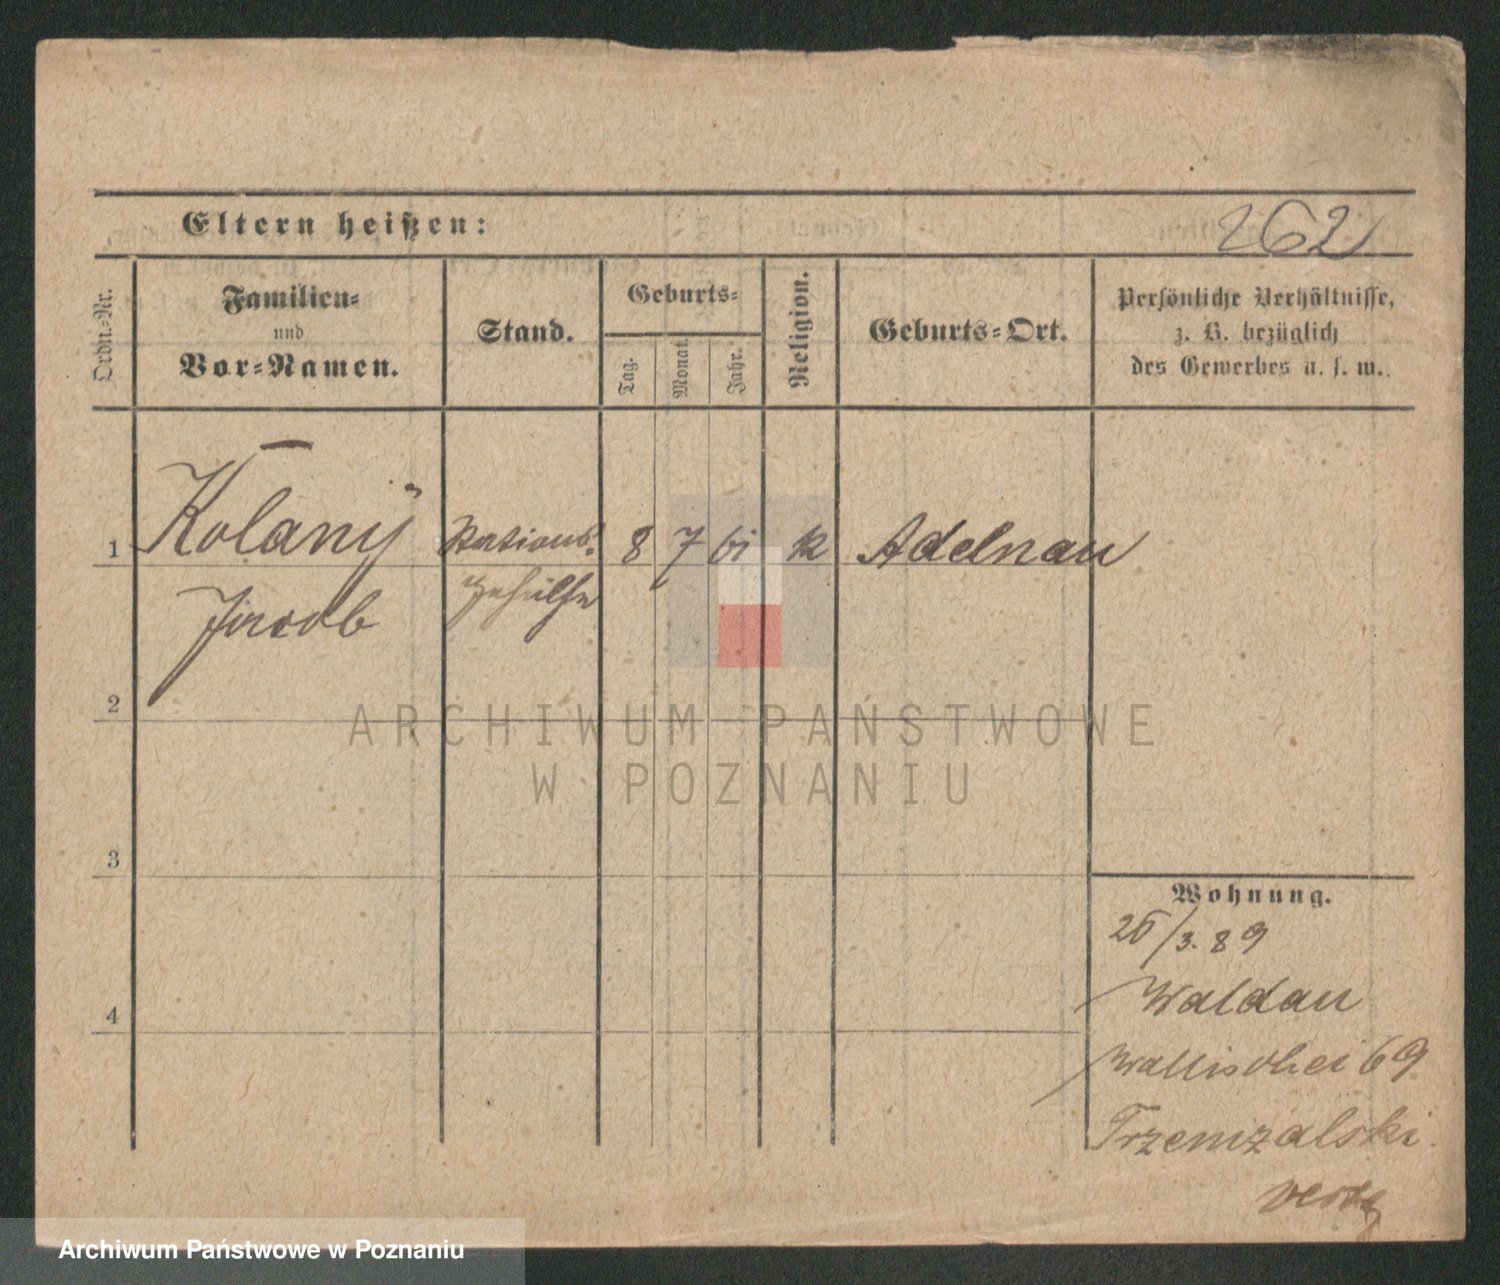 Eltern heißen:
262
Ordn.-Nr.
Familien-
und
Vor-Namen.
Stand.
Geburts-
Tag.
Monat.
Jahr.
Religion.
Geburts-Ort.
Persönliche Verhältnisse,
z. B. bezüglich
des Gewerbes u. s. w.
1 Kolany Stations. 8 7 61 k Adelnau
Jacob gehülfe
2
ARCHIWUM PAŃSTWOWE
W POZNANIU
3
4
Wohnung.
26/3. 89
Waldau
Wallischei 69
Trzemzalski
Archiwum Państwowe w Poznaniu